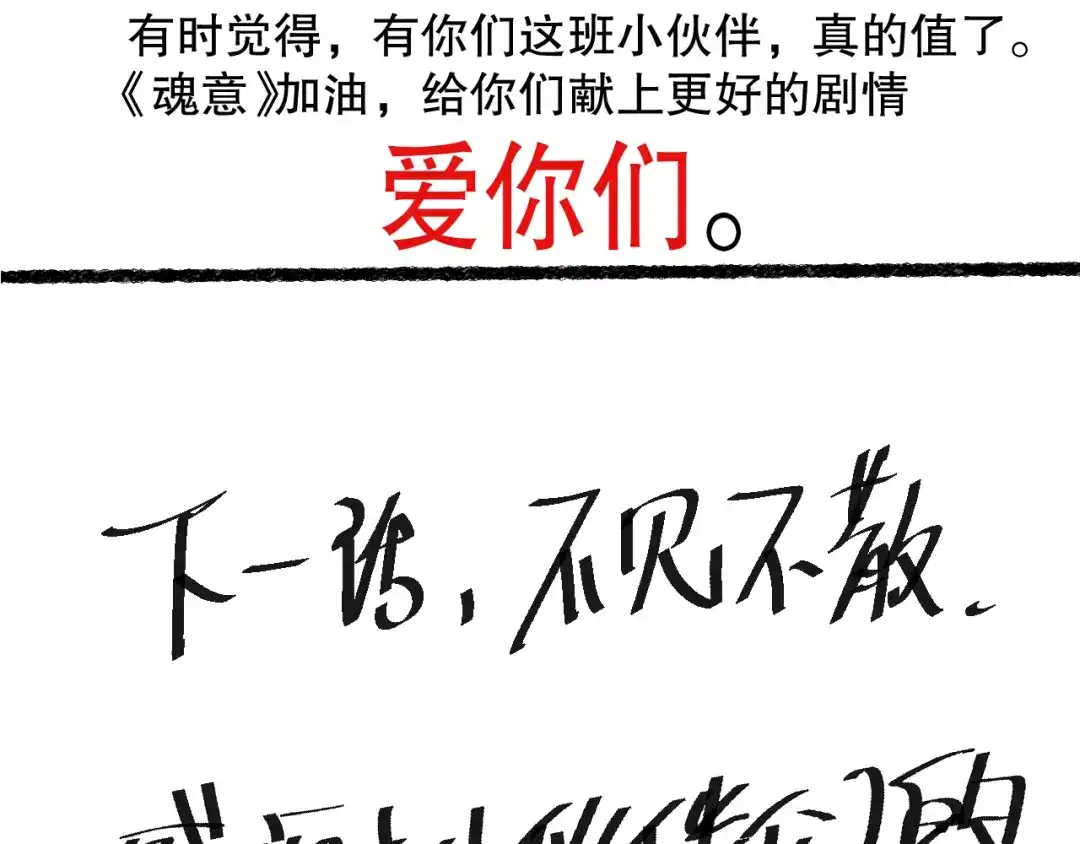 有时觉得，有你们这班小伙伴，真的值了。
《魂意》加油，给你们献上更好的剧情
爱你们。
下一话，不见不散.
小伙伴们的